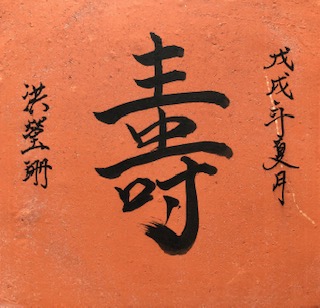 戊戌年夏月
壽
洪瑩珊